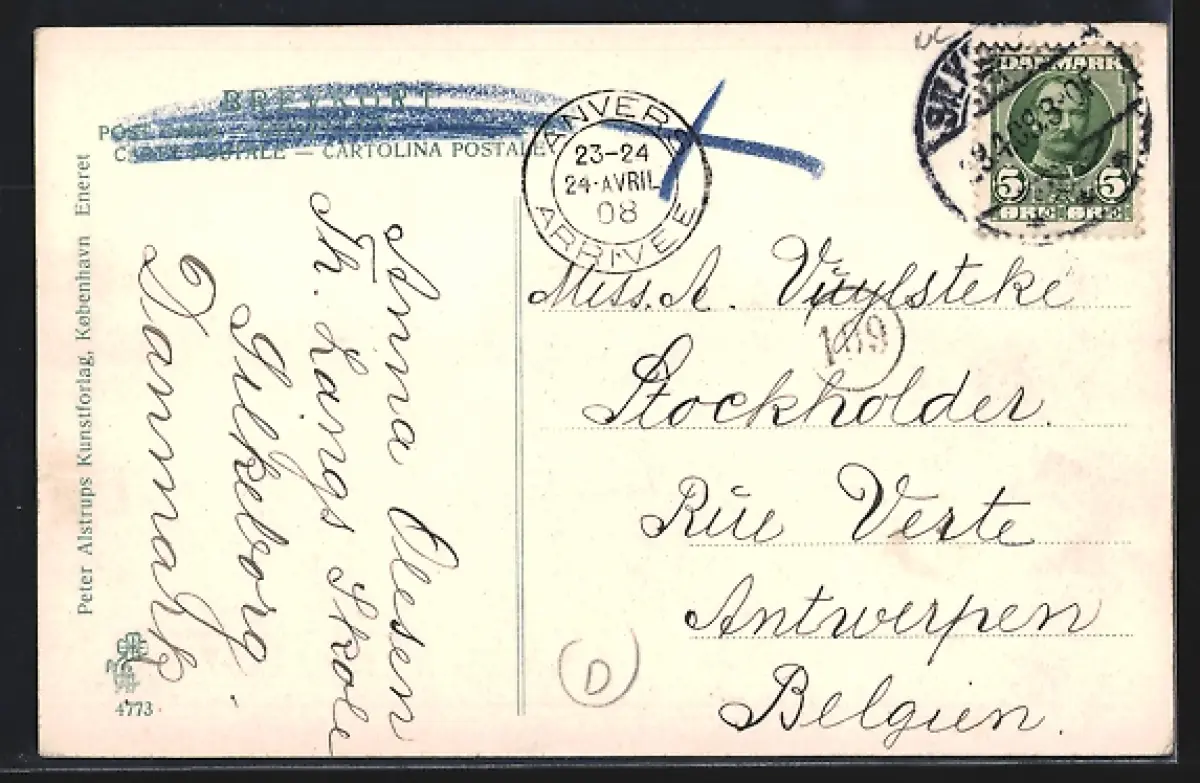 BREVKORT
POST CARD
CARTE POSTALE — CARTOLINA POSTALE
Peter Alstrups Kunstforlag, København Eneret
4773
Anna Olesen
Th. Langs Skole
Silkeborg.
Danmark
ANVERS
23-24
24-AVRIL
08
ARRIVÉE
DANMARK
5 5
ØRE ØRE
Miss. A. Vuylsteke
Stockholder.
Rue Verte
Antwerpen
Belgien.
D